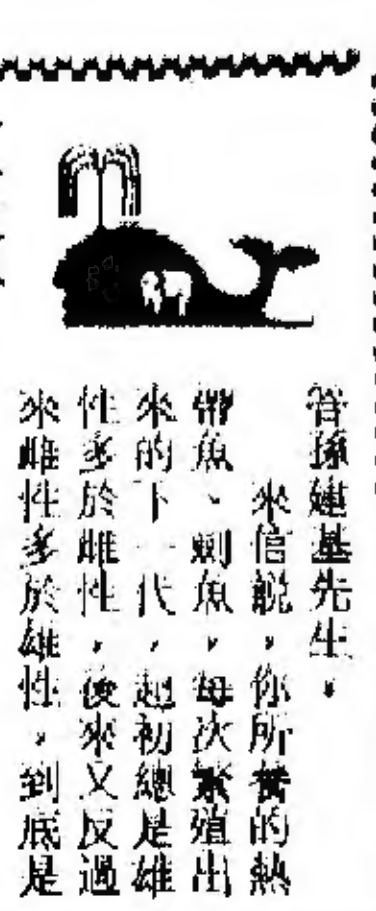 管孫建基先生，
來信說，你所養的熱
帶魚、劍魚，每次繁殖出
來的下一代，起初總是雄
性多於雌性，後來又反過
來雌性多於雄性，到底是